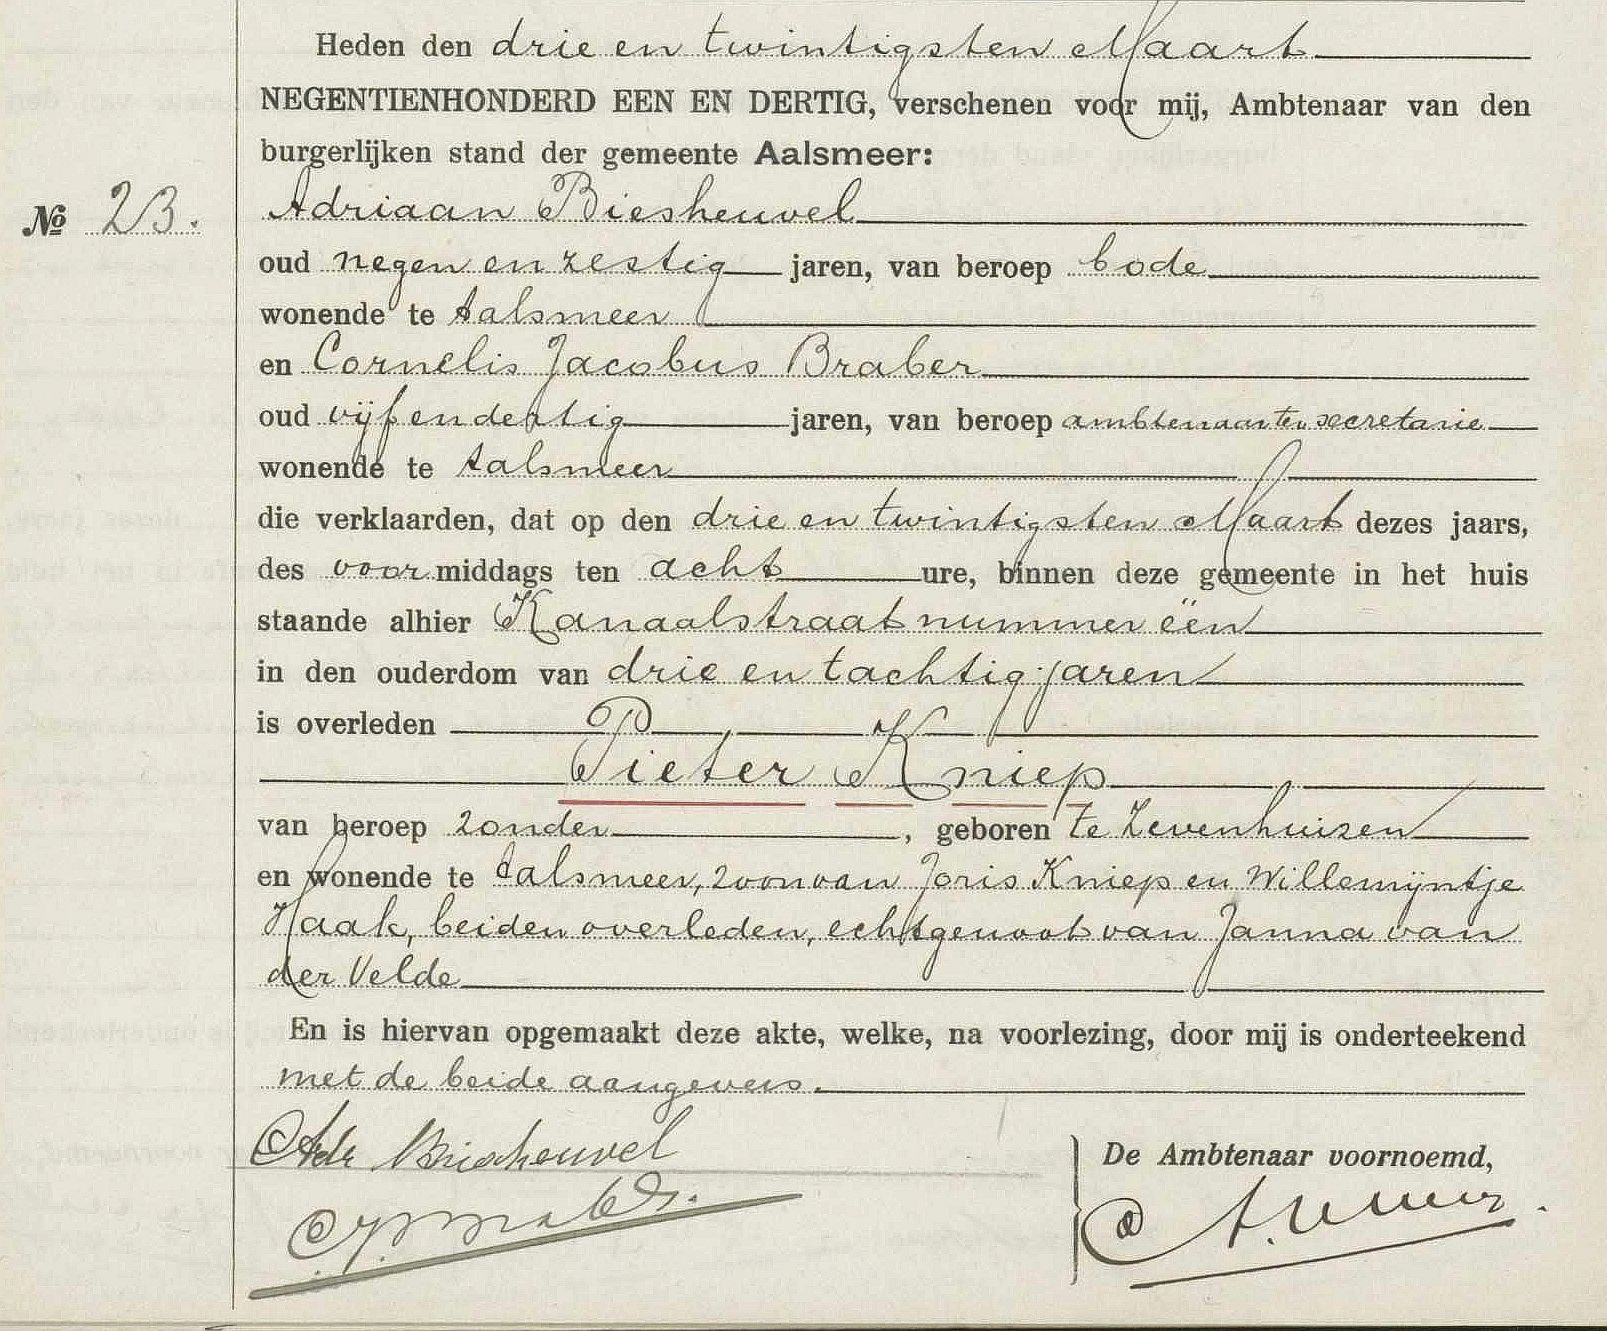 Heden den drie en twintigsten Maart
NEGENTIENHONDERD EEN EN DERTIG, verschenen voor mij, Ambtenaar van den
burgerlijken stand der gemeente Aalsmeer:
№ 23.
Adriaan Biesheuvel
oud negen en zestig jaren, van beroep bode
wonende te Aalsmeer
en Cornelis Jacobus Braber
oud vijf en dertig jaren, van beroep ambtenaar ter secretarie
wonende te Aalsmeer
die verklaarden, dat op den drie en twintigsten Maart dezes jaars,
des voormiddags ten acht ure, binnen deze gemeente in het huis
staande alhier Kanaalstraat nummer één
in den ouderdom van drie en tachtig jaren
is overleden
Pieter Kniep
van beroep zonder, geboren te Zevenhuizen
en wonende te Aalsmeer, zoon van Joris Kniep en Willemijntje
Haak, beiden overleden, echtgenoot van Janna van
der Velde
En is hiervan opgemaakt deze akte, welke, na voorlezing, door mij is onderteekend
met de beide aangevers.
Adr Biesheuvel
De Ambtenaar voornoemd,
CJ Braber.